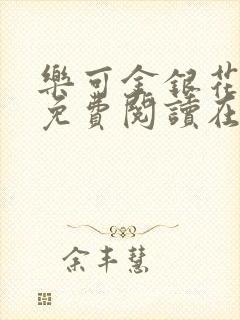 樂可金銀花
免費閱讀在
余丰慧